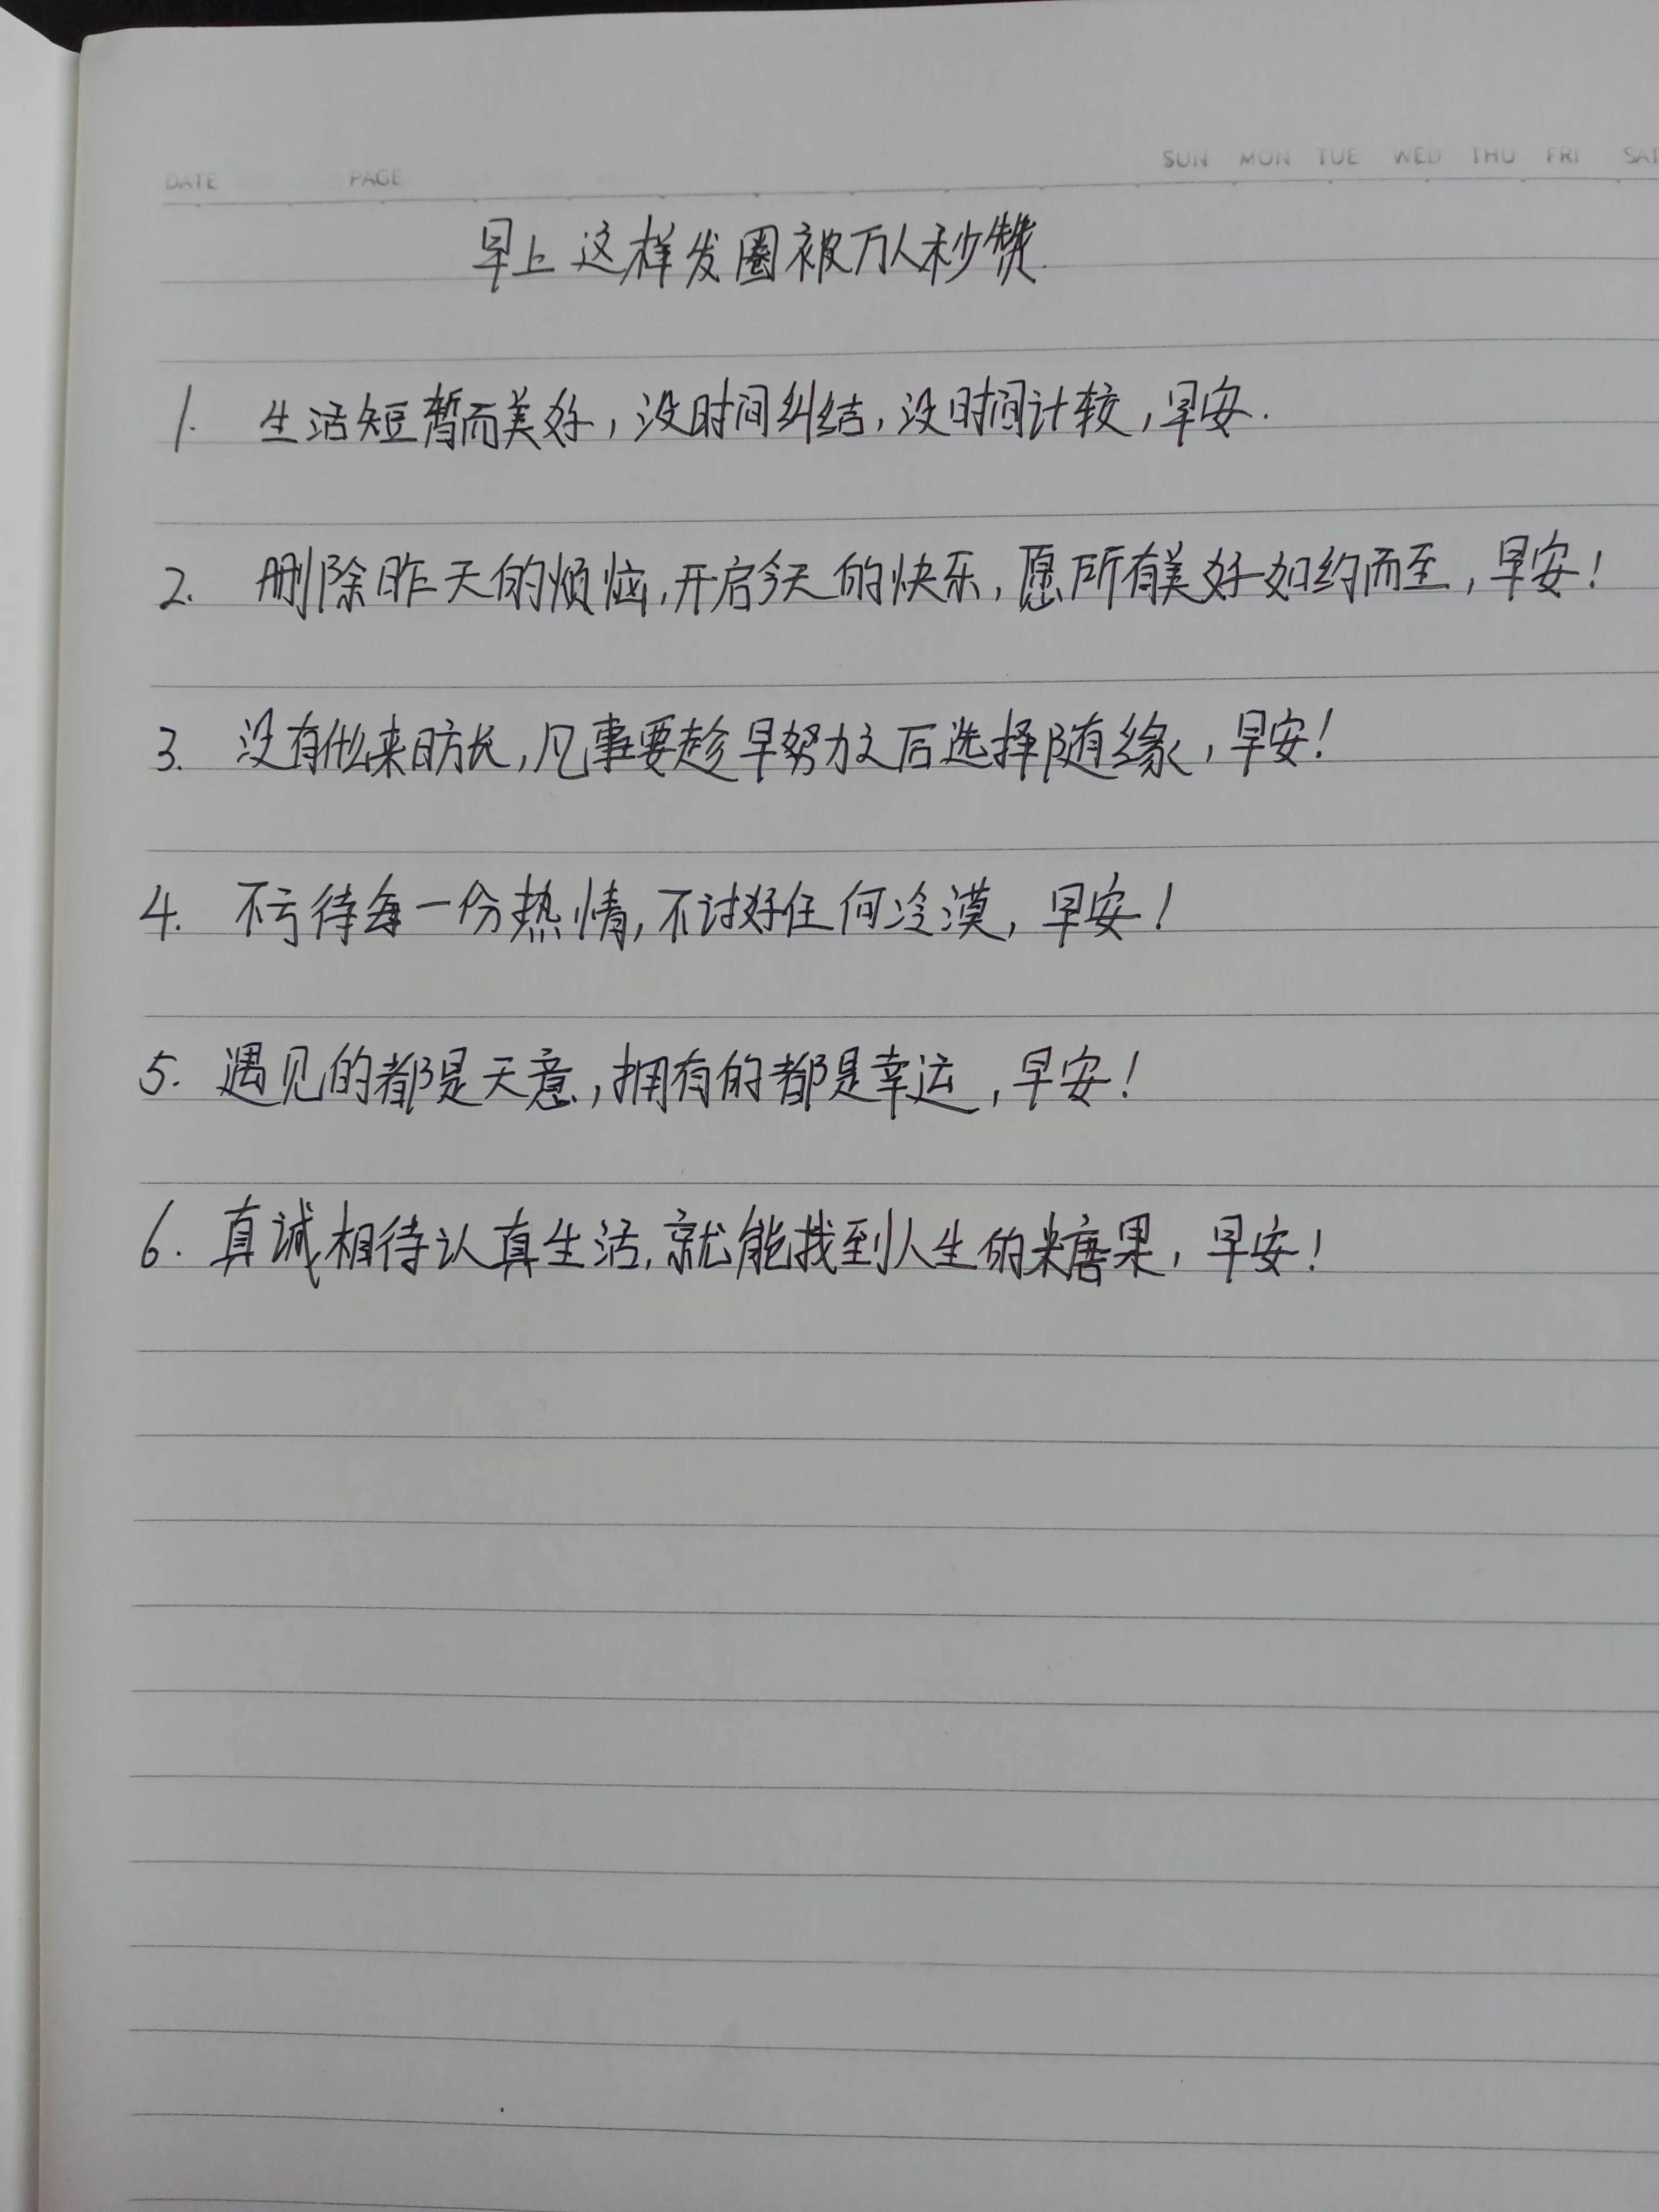 DATE PAGE SUN MON TUE WED THU FRI SAT
早上这样发圈被万人秒赞.
1. 生活短暂而美好,没时间纠结,没时间计较,早安.
2. 删除昨天的烦恼,开启今天的快乐,愿所有美好如约而至,早安!
3. 没有什么来日方长,凡事要趁早努力之后选择随缘,早安!
4. 不亏待每一份热情,不讨好任何冷漠,早安!
5. 遇见的都是天意,拥有的都是幸运,早安!
6. 真诚相待认真生活,就能找到人生的糖果,早安!